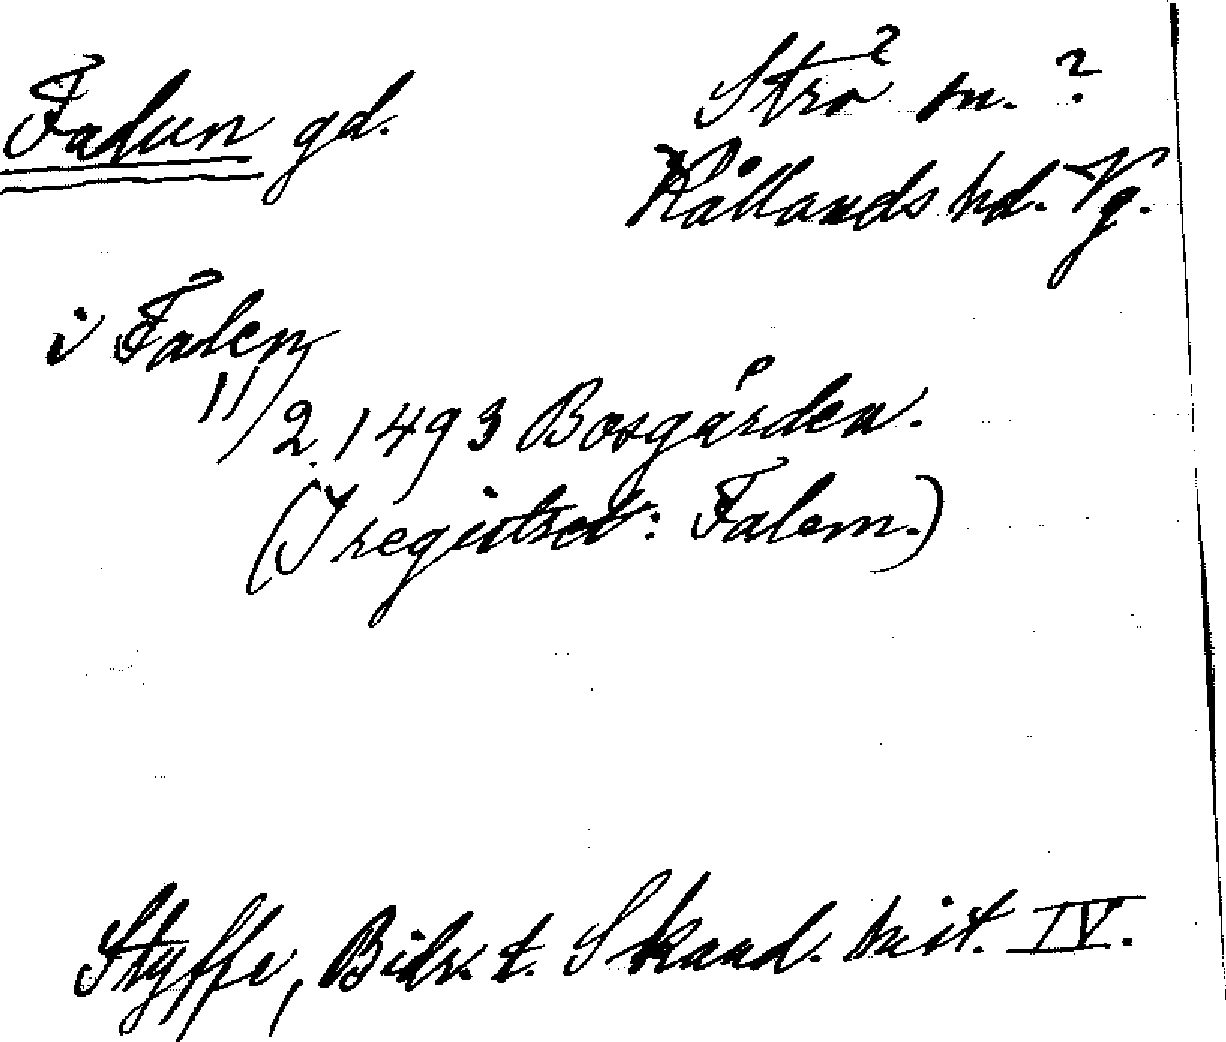 Falun gd.
Strö sn. ?
Kållands hd. Vg.
i Falen
11/2 1493 Bosgården.
(I registret: Falem.)
Styffe, Bidr. t. Skand. hist. IV.